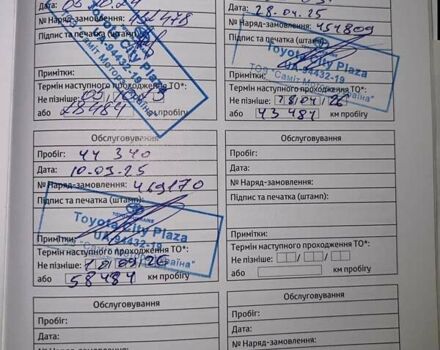 Дата:
№ Наряд-замовлення: 452478
Підпис та печатка (штамп):
Toyota City Plaza
UA-94432-19
Примітки:
Термін наступного проходження ТО*:
Не пізніше:
або 28484 км пробігу
Дата: 28.04.25
№ Наряд-замовлення: 454809
Підпис та печатка (штамп):
Toyota City Plaza
UA-94432-19
ТОВ "Саміт Мотор Україна"
Примітки:
Термін наступного проходження ТО*:
Не пізніше: 28/04/26
або 43484 км пробігу
Обслуговування
Пробіг: 44 340
Дата: 10-09-25
№ Наряд-замовлення: 469170
Підпис та печатка (штамп):
Toyota City Plaza
UA-94432-19
Примітки:
Термін наступного проходження ТО*:
Не пізніше: 10/09/26
або 58484 км пробігу
Обслуговування
Пробіг:
Дата:
№ Наряд-замовлення:
Підпис та печатка (штамп):
Примітки:
Термін наступного проходження ТО*:
Не пізніше: / /
або км пробігу
Обслуговування
Пробіг:
Дата:
№ Наряд-замовлення:
Обслуговування
Пробіг:
Дата:
№ Наряд-замовлення: